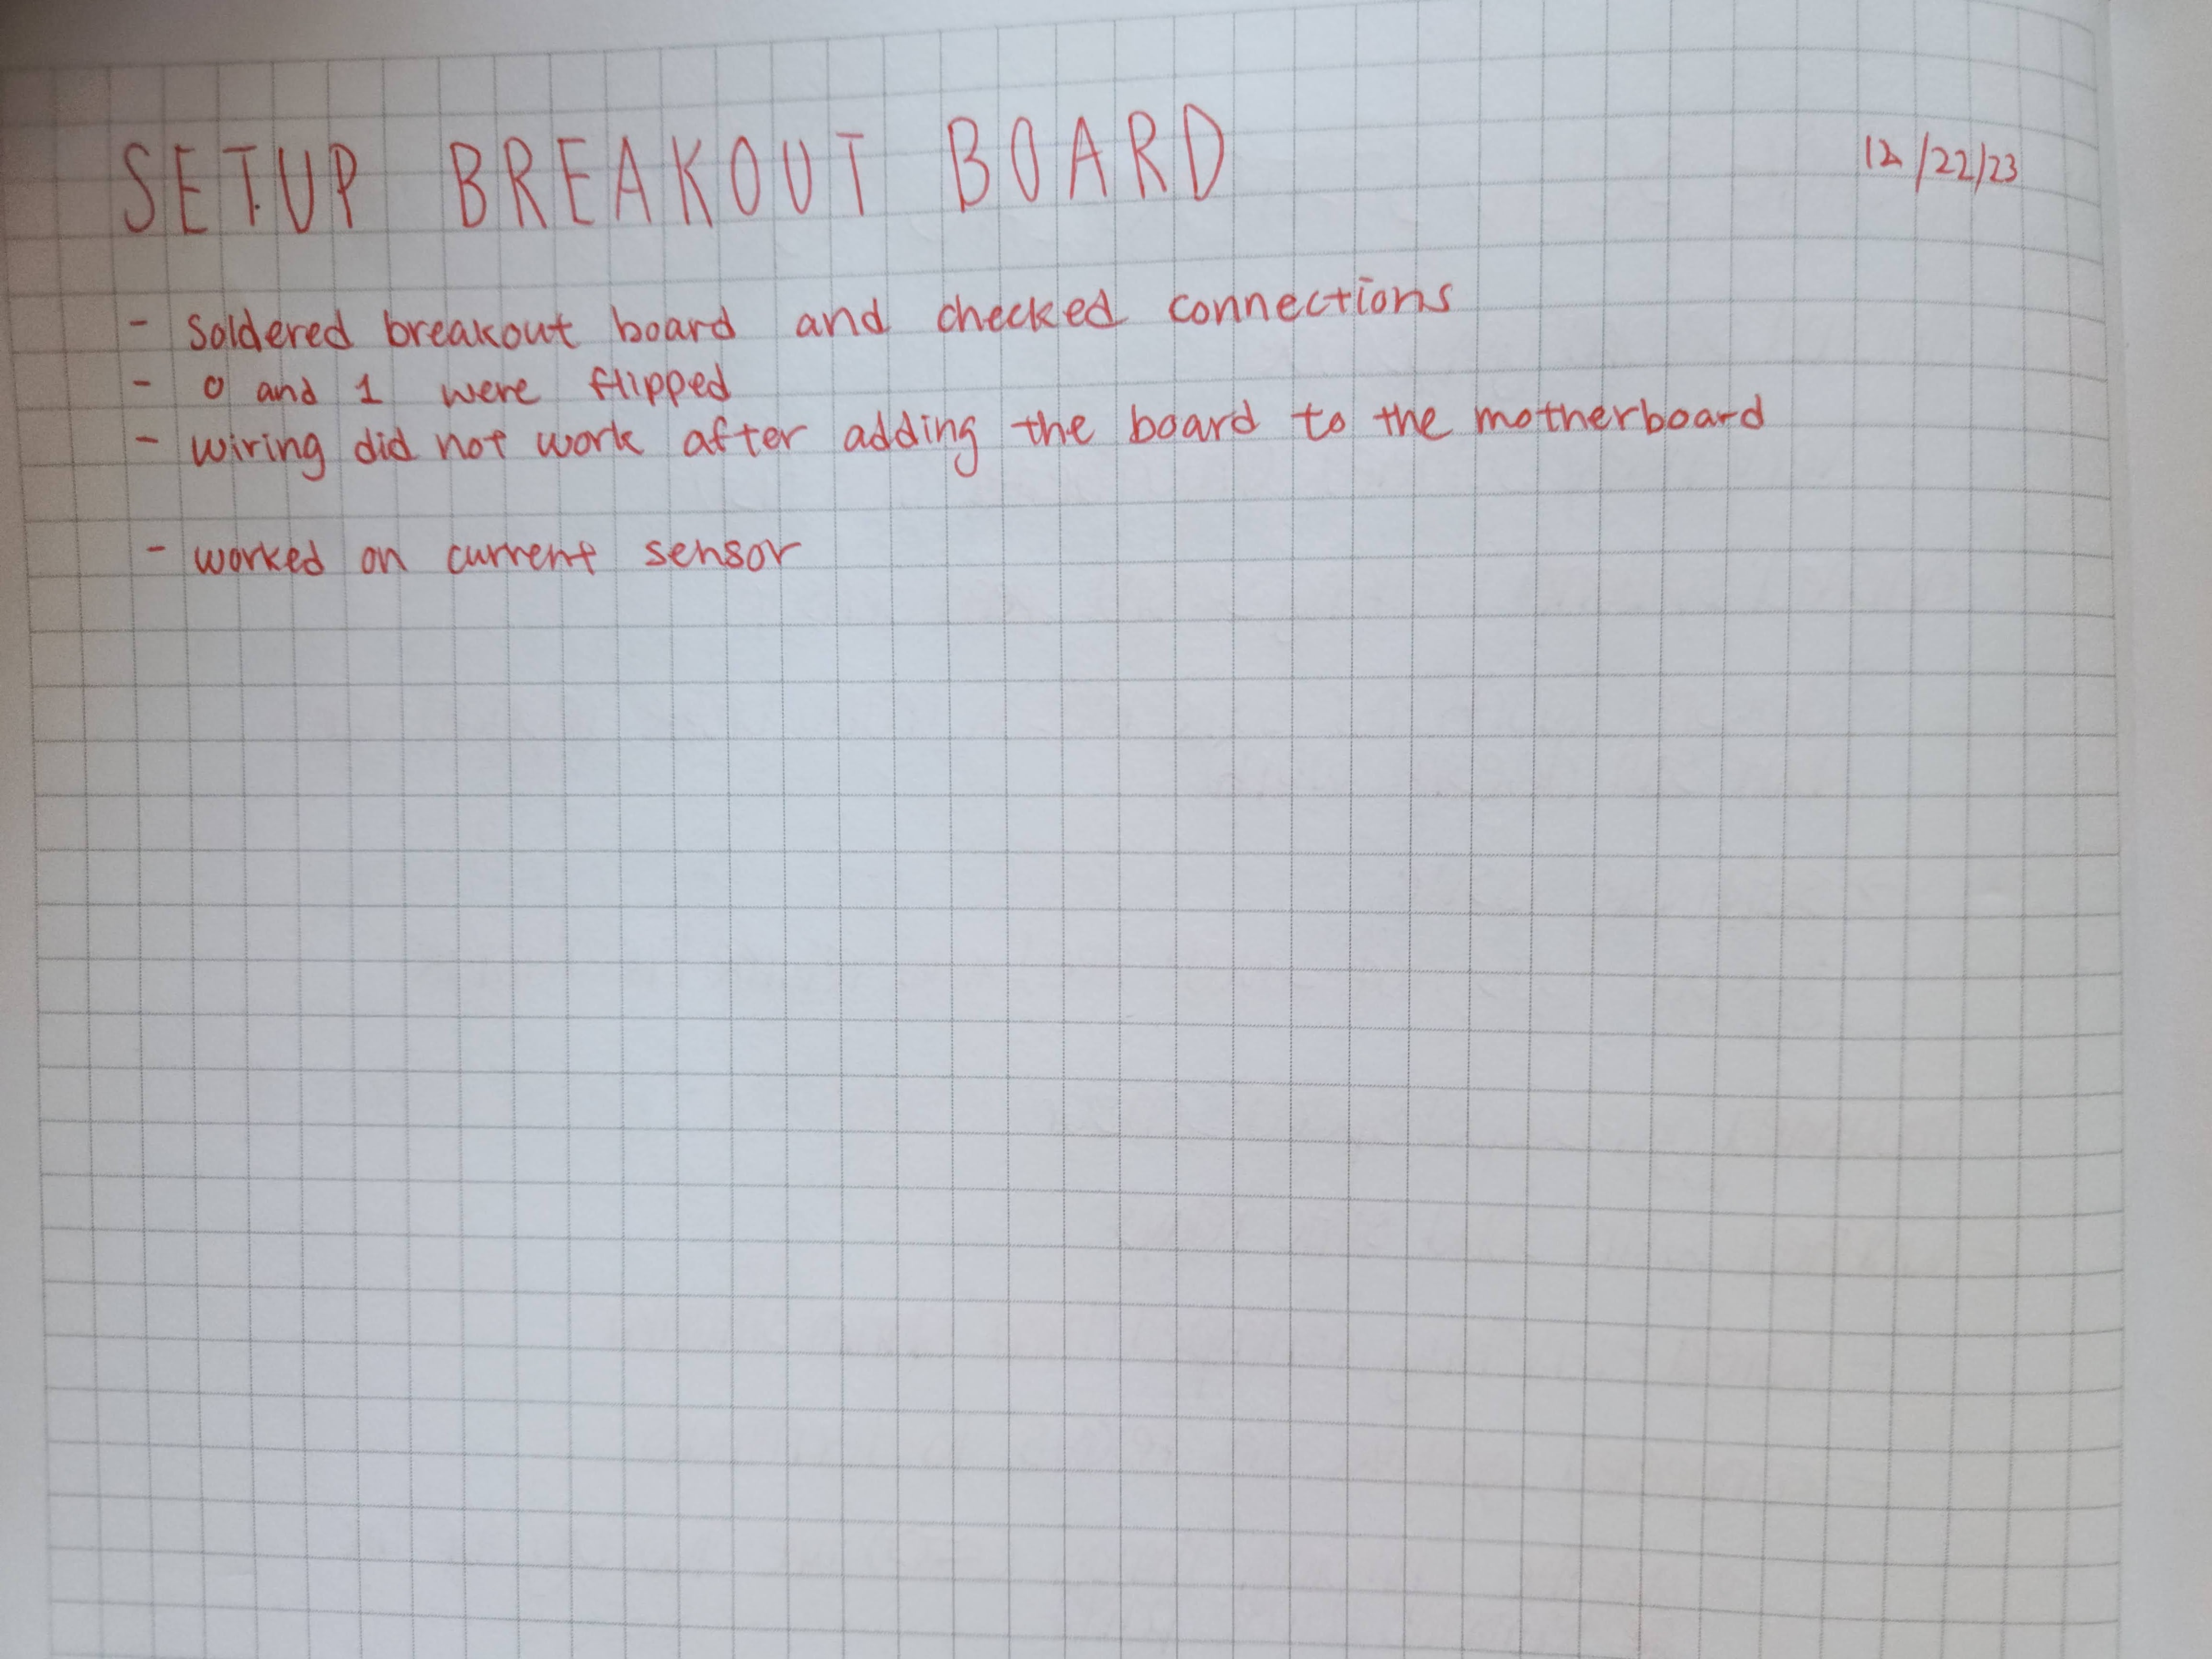 SETUP BREAKOUT BOARD
12/22/23
- soldered breakout board and checked connections
- 0 and 1 were flipped
- wiring did not work after adding the board to the motherboard
- worked on current sensor